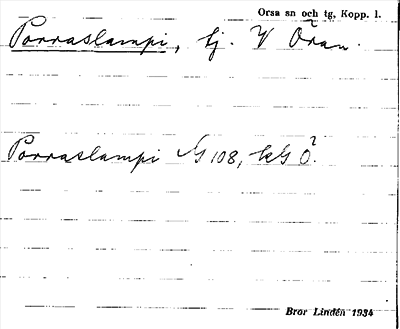 Orsa sn och tg, Kopp. l.
Porraslampi, tj. V Öran.
Porraslampi G 108, kG Ö?
Bror Lindén 1934